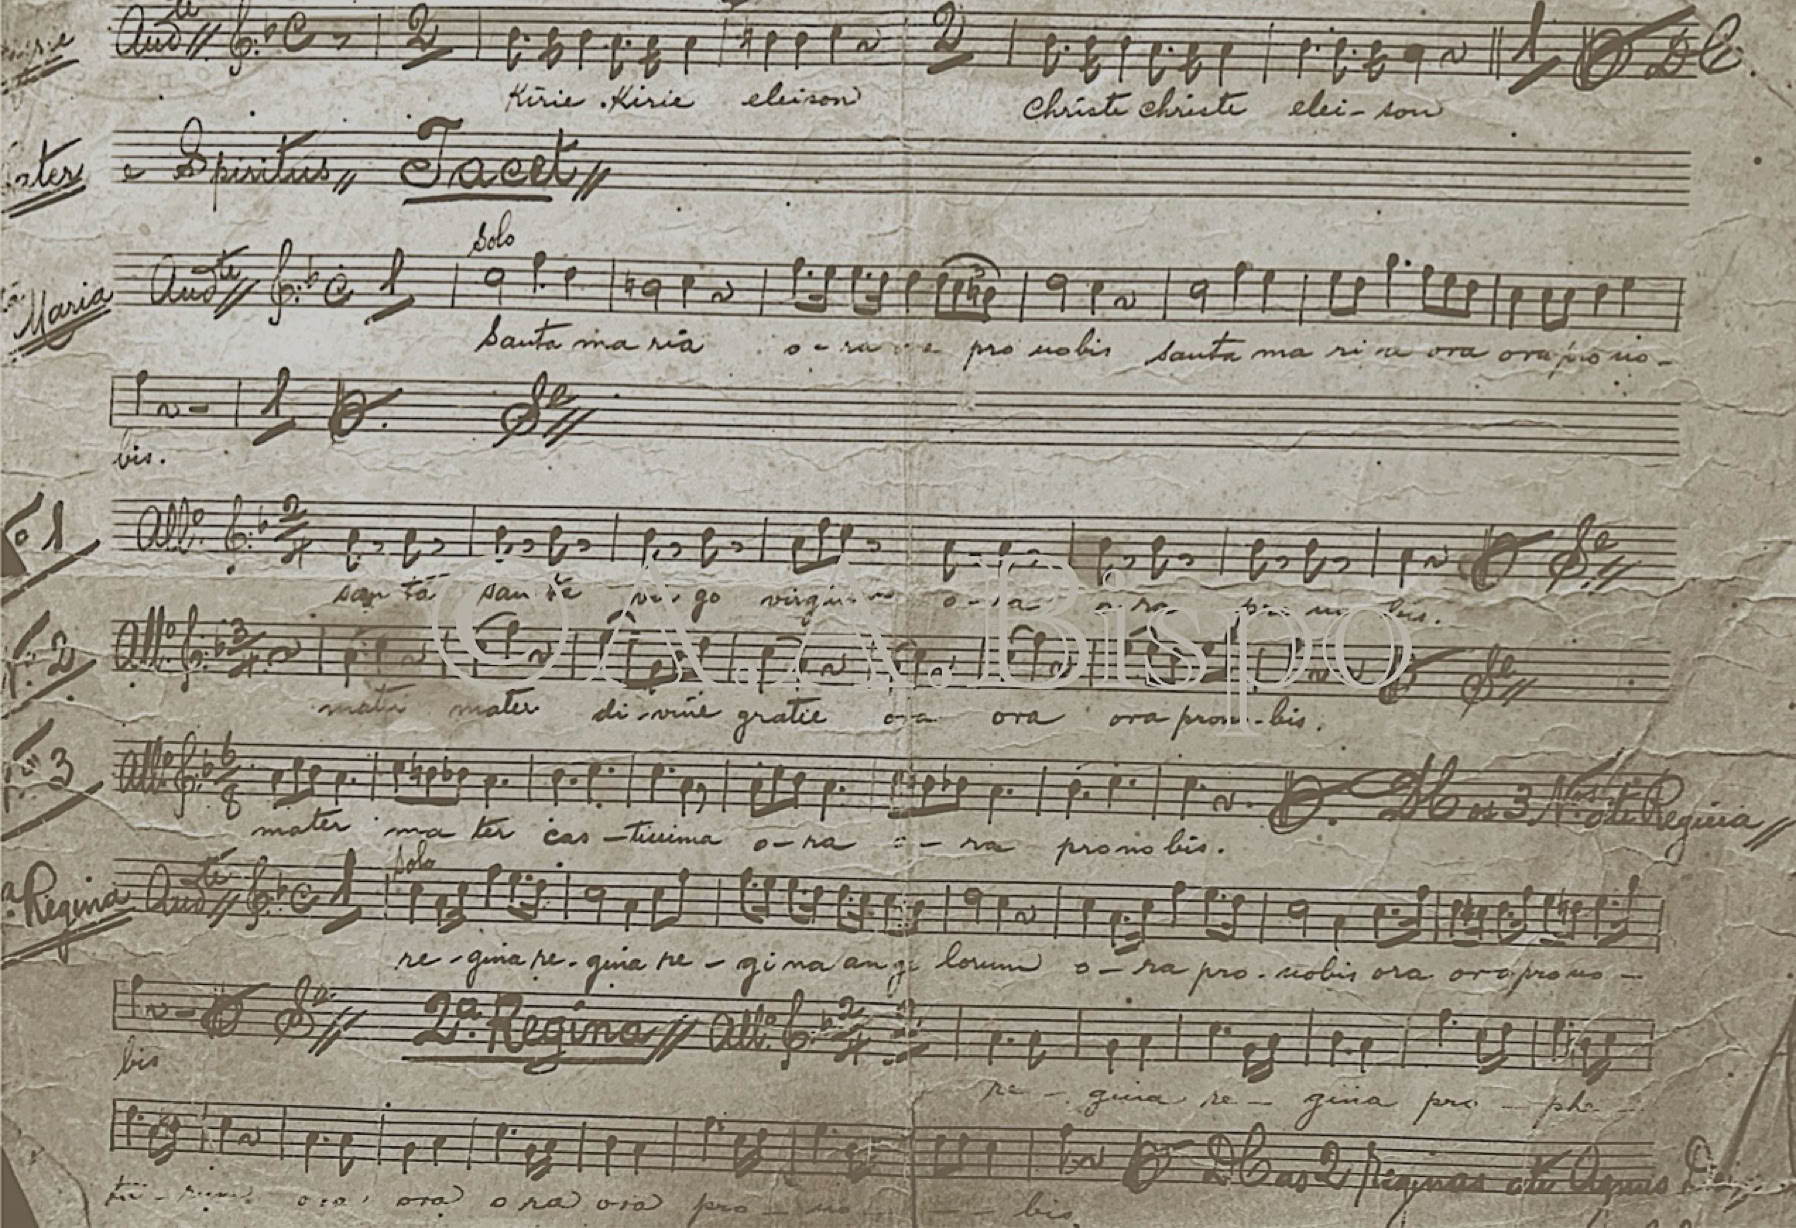 Andte C 2 2 1 DC
Kirie Kirie eleison Christe christe elei-son
e Spiritus Tacet
Solo
Maria Andte C 1
Santa ma ria o-ra pro nobis santa ma ri a ora ora pro no-
1
bis.
1 Allo. 2/4
san ta san ta vi go o-ra o ra bis.
2 Allo. 3/4
mater mater di-vine gratie ora ora ora prono-bis.
3 Allo. 6/8 DC os 3 Nos até Regina
mater ma ter cas-tissima o-ra o-ra pro no bis.
Solo
Regina Andte C 1
re-gina re-gina re-gi na an ge lorum o-ra pro-nobis ora ora prono-
2a. Regina Allo. 2/4
bis
re-gina re-gina pro-phe-
DC as 2 Reginas até Agnus
ta-rum ora ora ora ora pro-no- bis.
©A.A.Bispo